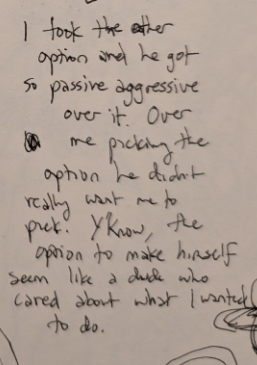 I took the other
option and he got
so passive aggressive
over it. Over
me picking the
option he didn't
really want me to
pick. Y'Know, the
option to make himself
seem like a dude who
cared about what I wanted
to do.